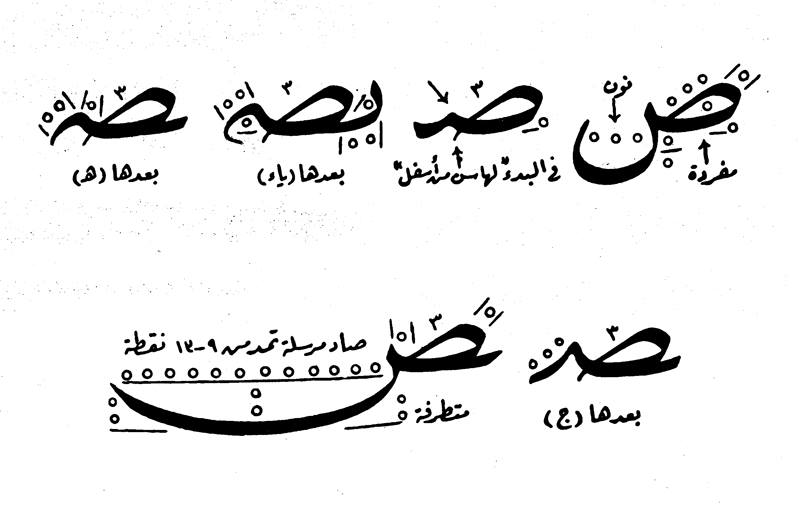 نون
ص
٣ صـ
٣ بصـ
٣ صـ
مفردة
في البدء "لها سن من أسفل"
بعدها (ياء)
بعدها (هـ)
٣ صـ
٣ ص
صاد مرسلة تمد من ٩-١٣ نقطة
بعدها (ج)
متطرفة